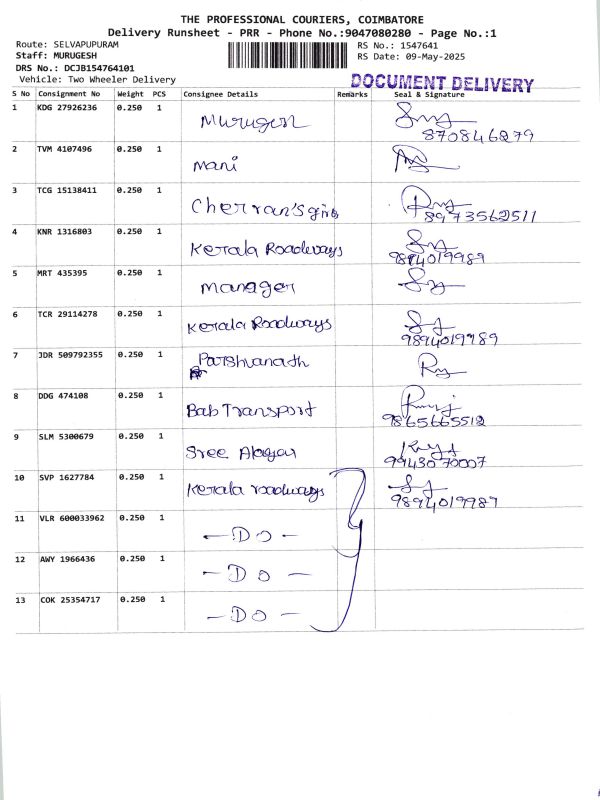 THE PROFESSIONAL COURIERS, COIMBATORE
Delivery Runsheet - PRR - Phone No.:9047080280 - Page No.:1
Route: SELVAPUPURAM
RS No.: 1547641
Staff: MURUGESH
RS Date: 09-May-2025
DRS No.: DCJB154764101
Vehicle: Two Wheeler Delivery
DOCUMENT DELIVERY
S No Consignment No Weight PCS Consignee Details Remarks Seal & Signature
1 KDG 27926236 0.250 1 Murugesh
870846279
2 TVM 4107496 0.250 1 Mani
3 TCG 15138411 0.250 1 Cherran's
8973562511
4 KNR 1316803 0.250 1 Kerala Roadways
9894019989
5 MRT 435395 0.250 1 Manager
6 TCR 29114278 0.250 1 Kerala Roadways
9894019989
7 JDR 509792355 0.250 1 Parshvanath
8 DDG 474108 0.250 1 Bab Transport
9865665512
9 SLM 5300679 0.250 1 Sree Alagar
9943070007
10 SVP 1627784 0.250 1 Kerala roadways
9894019989
11 VLR 600033962 0.250 1 - Do -
12 AWY 1966436 0.250 1 - Do -
13 COK 25354717 0.250 1 - Do -